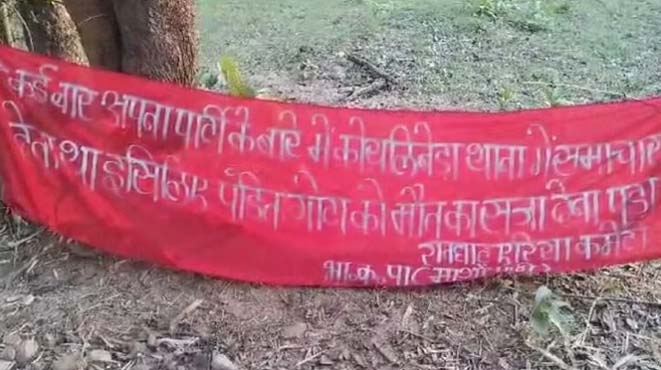 कई बार अपना पार्टी के बारे में कोयलिबेड़ा थाना में समाचार
देता था इसिलिए पंडित गोटा को मौत का सजा देना पड़ा
रावघाट एरिया कमेटी
भा.क.पा